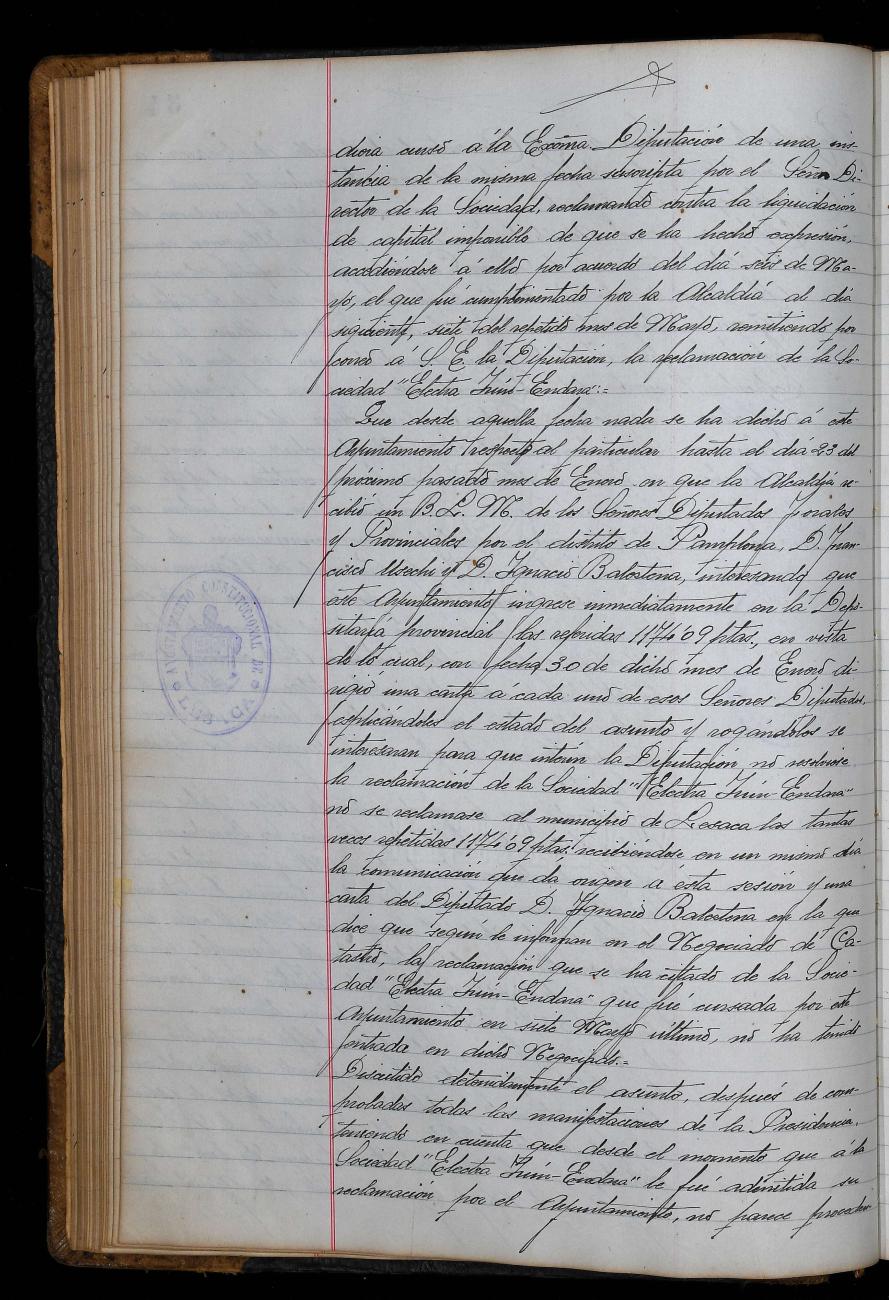 diera curso á la Excma. Diputación de una ins-
tancia de la misma fecha suscripta por el Señor Di-
rector de la Sociedad, reclamando contra la liquidación
de capital imponible de que se ha hecho expresión,
accediéndose á ello por acuerdo del día seis de Ma-
yo, el que fué cumplimentado por la Alcaldía al día
siguiente, siete del repetido mes de Mayo, remitiendo por
correo á S. E. la Diputación, la reclamación de la So-
ciedad "Electra Irún-Endara":=
Que desde aquella fecha nada se ha dicho á este
Ayuntamiento respecto al particular hasta el día 23 del
próximo pasado mes de Enero en que la Alcaldía re-
cibió un B. L. M. de los Señores Diputados Forales
y Provinciales por el distrito de Pamplona, D. Fran-
cisco Usechi y D. Ignacio Balestena, interesando que
este Ayuntamiento ingrese inmediatamente en la Depo-
sitaría provincial las referidas 1174'09 ptas., en vista
de lo cual, con fecha 30 de dicho mes de Enero di-
rigió una carta a cada uno de esos Señores Diputados,
esplicándoles el estado del asunto y rogándolos se
interesaran para que interin la Diputación no resolviese
la reclamación de la Sociedad "Electra Irún-Endara"
no se reclamase al municipio de Lesaca las tantas
veces repetidas 1174'09 ptas; recibiéndose en un mismo día
la comunicación que da origen á esta sesión y una
carta del Diputado D. Ignacio Balestena en la que
dice que segun le informan en el Negociado de Ca-
tastro, la reclamación que se ha citado de la Socie-
dad "Electra Irún-Endara" que fué cursada por este
Ayuntamiento en siete Mayo último, no ha tenido
entrada en dicho Negociado.=
Discutido detenidamente el asunto, después de com-
probadas todas las manifestaciones de la Presidencia,
teniendo en cuenta que desde el momento que á la
Sociedad "Electra Irún-Endara" le fué admitida su
reclamación por el Ayuntamiento, no parece proceden
AYUNTAMIENTO CONSTITUCIONAL DE
LESACA